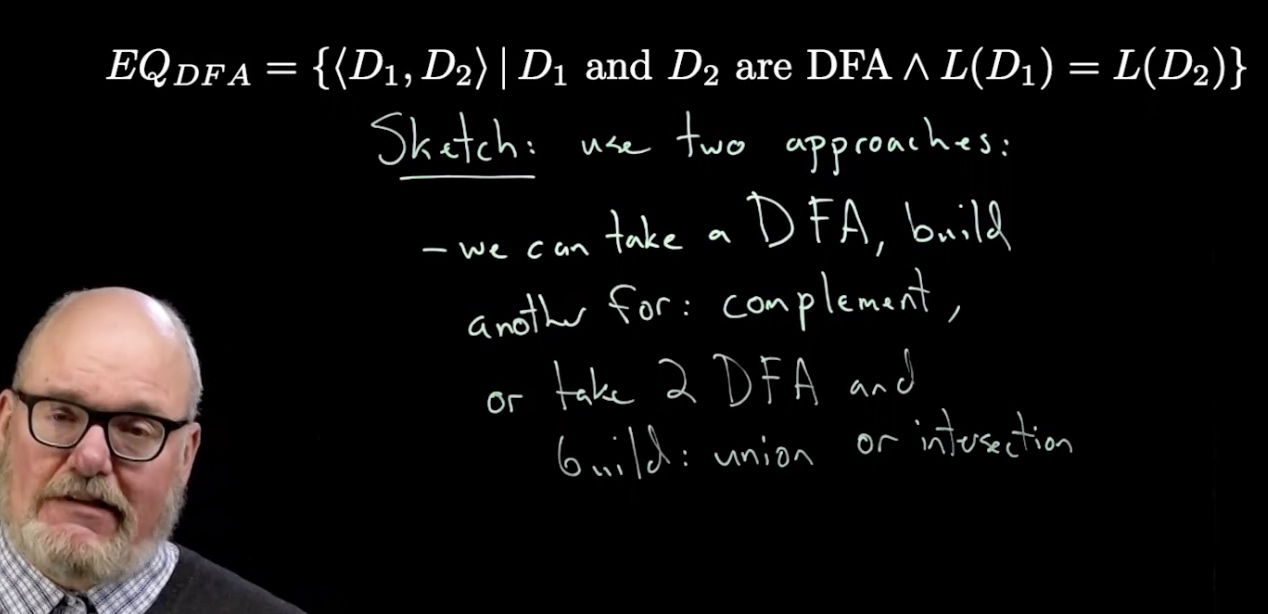 EQ_{DFA} = {⟨D₁, D₂⟩ | D₁ and D₂ are DFA ∧ L(D₁) = L(D₂)}
Sketch: use two approaches:
– we can take a DFA, build
another for: complement,
or take 2 DFA and
build: union or intersection